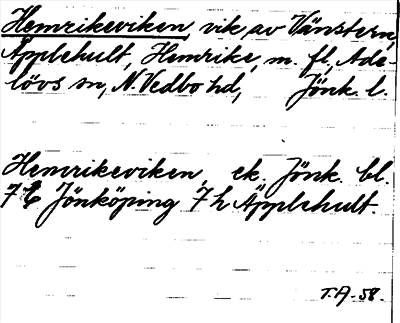 Henrikeviken, vik av Vänstern,
Äpplehult, Henrike, m. fl., Ade-
lövs sn, N. Vedbo hd, Jönk. l.
Henrikeviken, ek. Jönk. bl.
7 Jönköping 7h Äpplehult.
T.A-58.